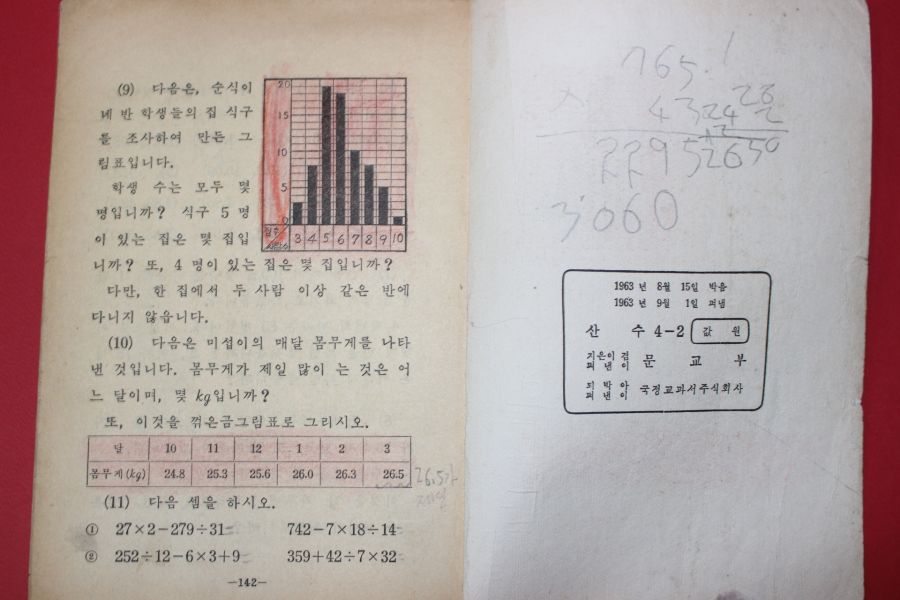 (9) 다음은, 순식이
네 반 학생들의 집 식구
를 조사하여 만든 그
림표입니다.
학생 수는 모두 몇
명입니까? 식구 5 명
이 있는 집은 몇 집입
니까? 또, 4 명이 있는 집은 몇 집입니까?
다만, 한 집에서 두 사람 이상 같은 반에
다니지 않읍니다.
20
15
10
5
0
집수
사람수
3 4 5 6 7 8 9 10
(10) 다음은 미섭이의 매달 몸무게를 나타
낸 것입니다. 몸무게가 제일 많이 는 것은 어
느 달이며, 몇 kg입니까?
또, 이것을 꺾은금그림표로 그리시오.
달 10 11 12 1 2 3
몸무게(kg) 24.8 25.3 25.6 26.0 26.3 26.5
26.5가
(11) 다음 셈을 하시오.
① 27×2-279÷31= 742-7×18÷14=
② 252÷12-6×3+9= 359+42÷7×32=
-142-
765
2295
3060
1963 년 8월 15일 박음
1963 년 9월 1일 펴냄
산 수 4-2 값 원
지은이 겸
펴 낸 이 문 교 부
되 박 아
펴 낸 이 국정교과서주식회사